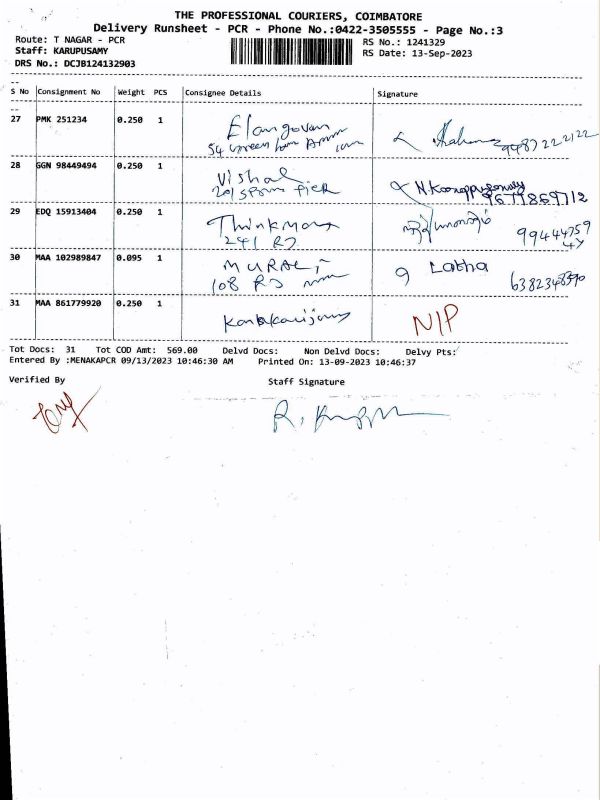 THE PROFESSIONAL COURIERS, COIMBATORE
Delivery Runsheet - PCR - Phone No.:0422-3505555 - Page No.:3
Route: T NAGAR - PCR
RS No.: 1241329
Staff: KARUPUSAMY
RS Date: 13-Sep-2023
DRS No.: DCJB124132903
S No Consignment No Weight PCS Consignee Details Signature
27 PMK 251234 0.250 1 Elangovan
54 Green
28 GGN 98449494 0.250 1 Vishal
9677869712
29 EDQ 15913404 0.250 1
241 RJ
30 MAA 102989847 0.095 1 MURALI Latha
108 RJ
31 MAA 861779920 0.250 1 NIP
Tot Docs: 31 Tot COD Amt: 569.00 Delvd Docs: Non Delvd Docs: Delvy Pts:
Entered By :MENAKAPCR 09/13/2023 10:46:30 AM Printed On: 13-09-2023 10:46:37
Verified By Staff Signature